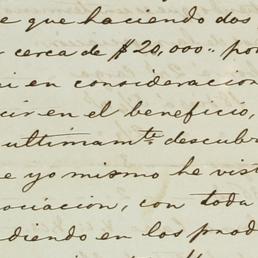 e que haciendo dos
cerca de $20,000.. po
i en consideracion
cir en el beneficio,
ultimamte. descub
e yo mismo he vis
ociacion, con toda
diendo en los prod